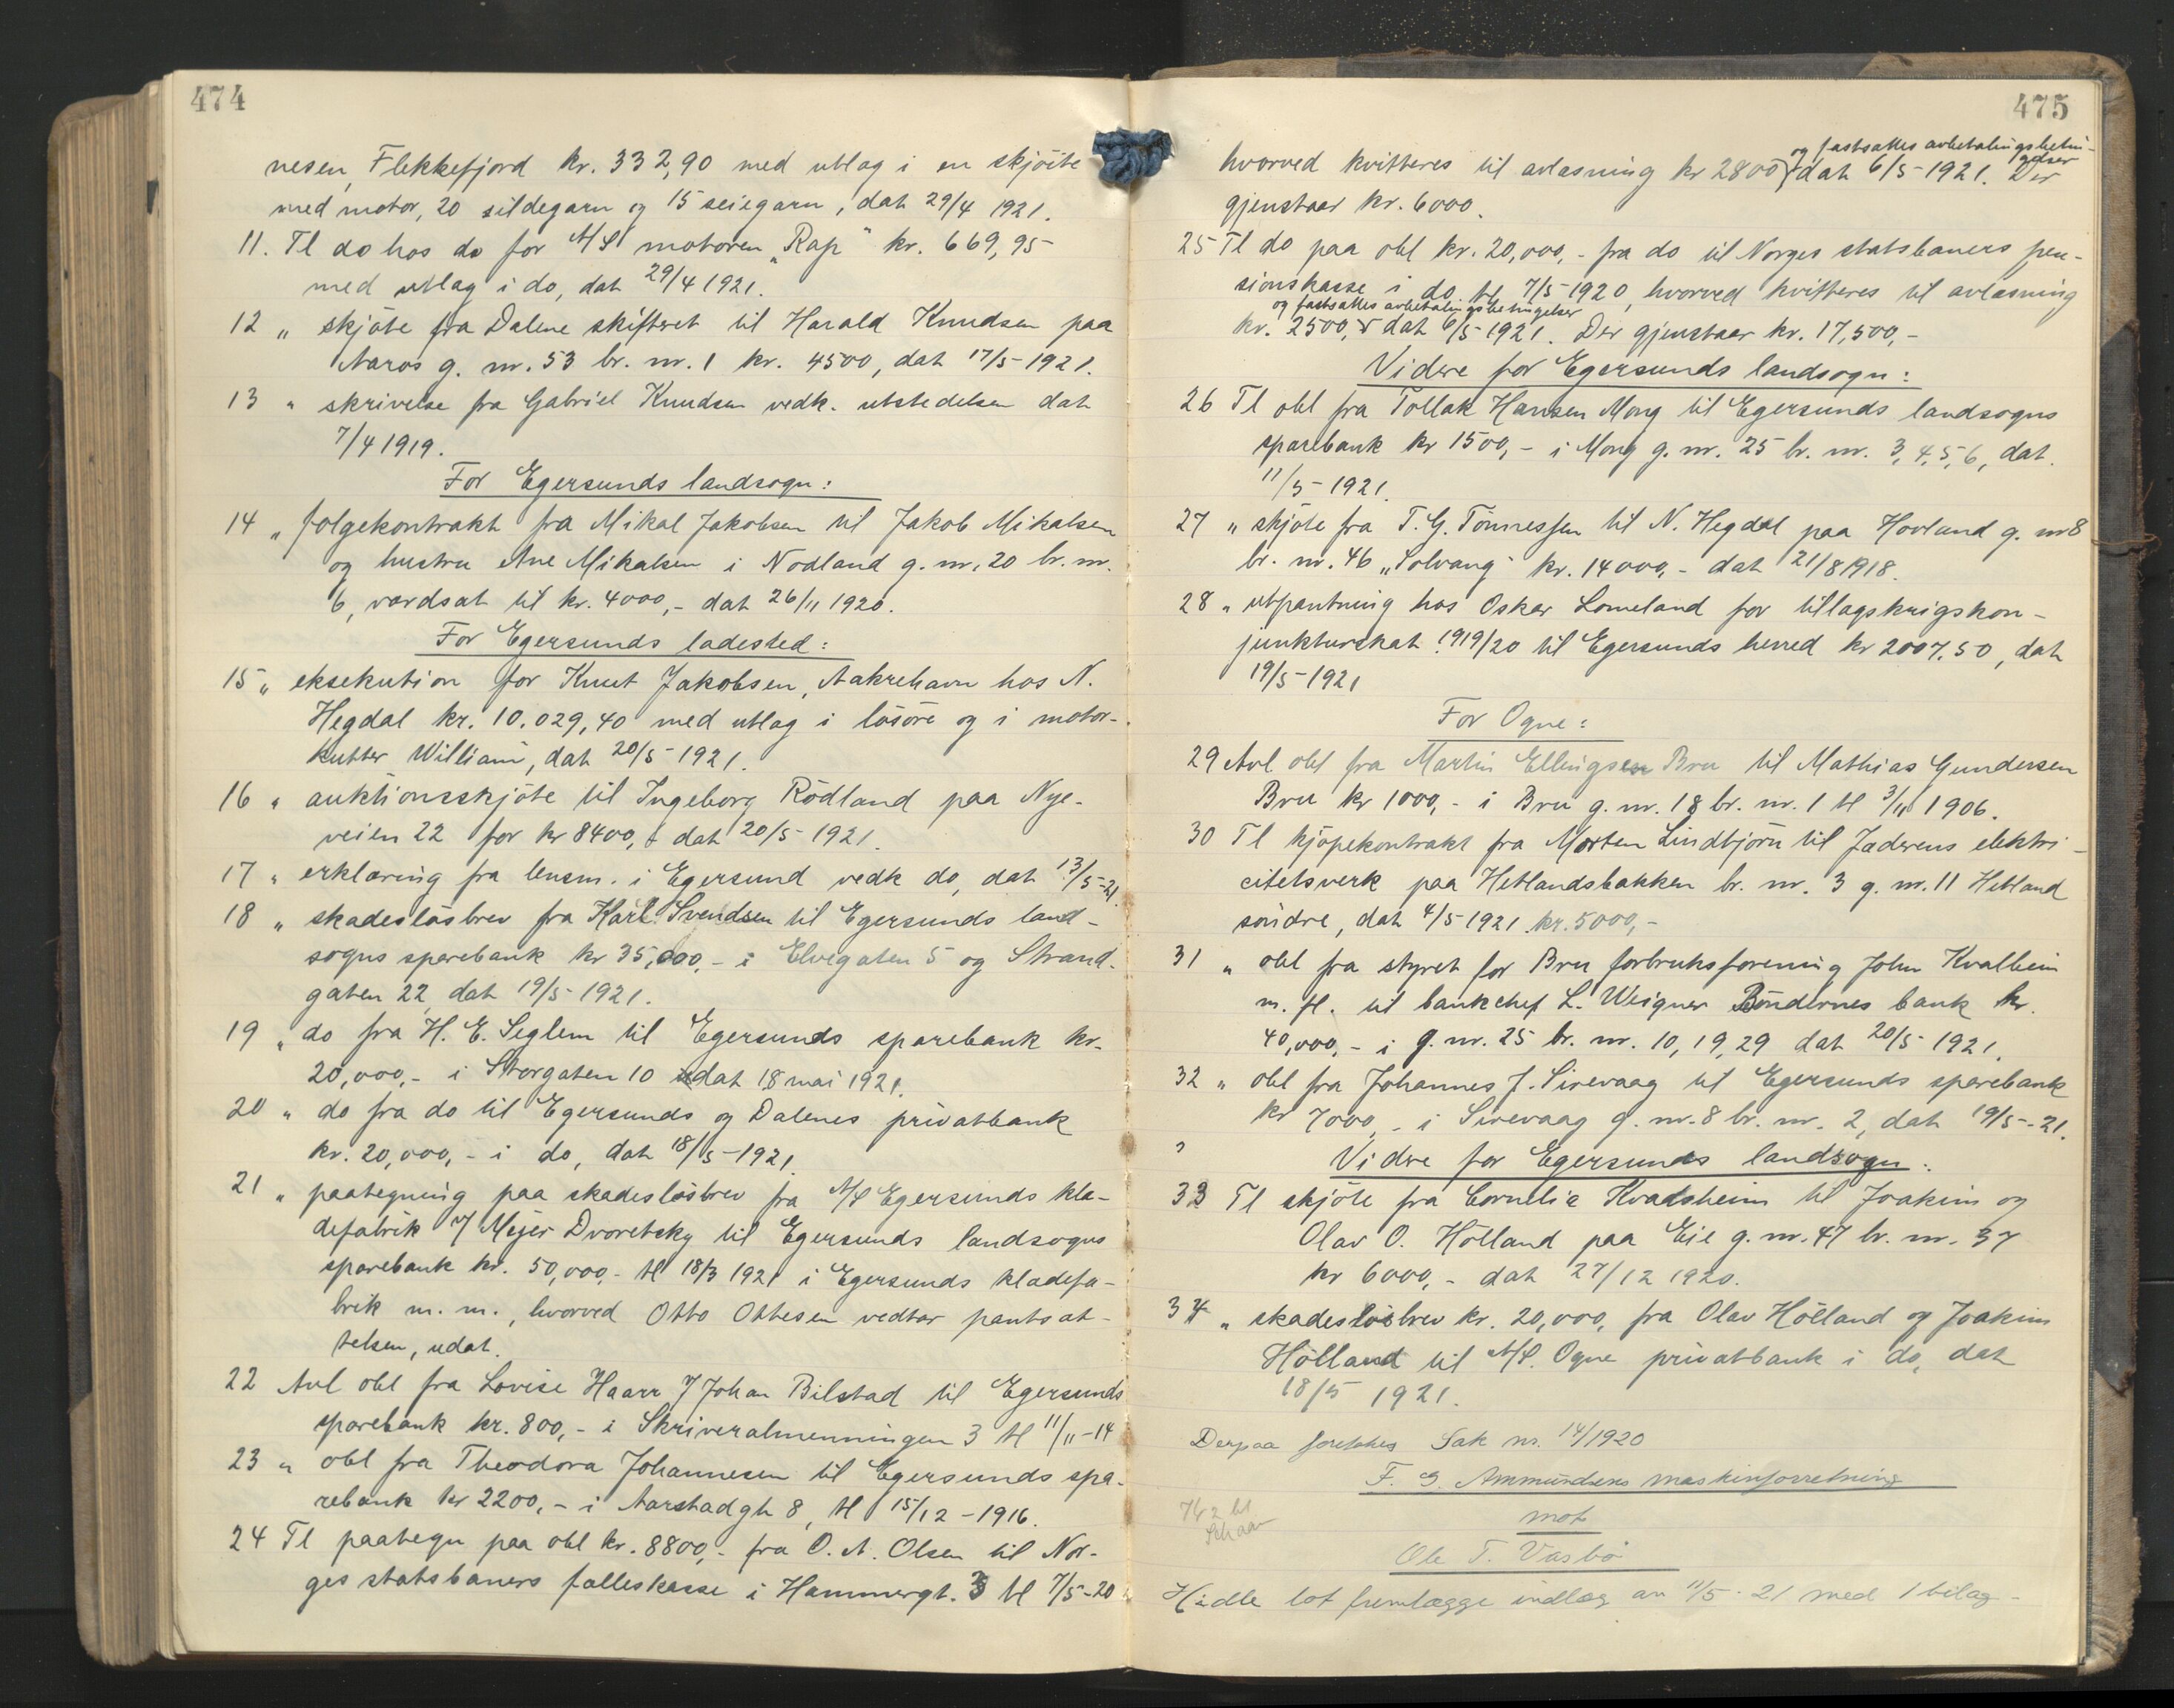 474
nesen, Flekkefjord kr. 332,90 med utlag i en skjöite
med motor, 20 sildegarn og 15 seiegarn, dat 29/4 1921.
11. Tl do hos do for A/S motoren "Rap" kr. 669,95
med utlag i do, dat 29/4 1921.
12 " skjöte fra Dalene skifteret til Harald Knudsen paa
Aaros g. nr. 53 br. nr. 1 kr. 4500, dat 17/5-1921.
13 " skrivelse fra Gabriel Knudsen vedk. utstedelsen dat
7/4 1919.
For Egersunds landsogn:
14 " folgekontrakt fra Mikal Jakobsen til Jakob Mikalsen
og hustru Ane Mikalsen i Nodland g. nr. 20 br. nr.
6, værdsat til kr. 4000,- dat 26/11 1920.
For Egersunds ladested:
15 " eksekution for Knut Jakobsen, Aakrehavn hos N.
Hegdal kr. 10.029,40 med utlag i lösöre og i motor-
kutter William, dat 20/5-1921.
16 " auktionsskjöte til Ingeborg Rödland paa Nye-
veien 22 for kr 8400,- dat 20/5-1921.
17 " erklæring fra lensm. i Egersund vedk do, dat 13/5-21.
18 " skadeslösbrev fra Karl Svendsen til Egersunds land-
sogns sparebank kr 35,000,- i Elvegaten 5 og Strand-
gaten 22, dat 19/5-1921.
19 " do fra H. E. Seglem til Egersunds sparebank kr.
20,000,- i Storgaten 10 dat 18 mai 1921.
20 " do fra do til Egersunds og Dalenes privatbank
kr. 20,000,- i do, dat 18/5-1921.
21 " paategning paa skadeslösbrev fra A/S Egersunds klæ-
defabrik v/ Mejer Dvoretsky til Egersunds landsogns
sparebank kr. 50,000,- tl 18/3 1921 i Egersunds klædefa-
brik m. m., hvorved Otto Ottesen vedtar pantsæt-
telsen, udat.
22 Avl obl fra Lovise Haarr / Johan Bilstad til Egersunds
sparebank kr. 800,- i Skriveralmenningen 3 tl 11/11-14
23 " obl fra Theodora Johannesen til Egersunds spa-
rebank kr 2200,- i Aarstadgt 8, tl 15/12-1916.
24 Tl paategn paa obl kr. 8800,- fra O. A. Olsen til Nor-
ges statsbaners fælleskasse i Hammergt. 3 tl 7/5-20
475
og fastsættes avbetalingsbetin-
gelser
hvorved kvitteres til avlæsning kr 2800 dat 6/5-1921. Der
gjenstaar kr. 6000.
25 Tl do paa obl kr. 20,000,- fra do til Norges statsbaners pen-
sionskasse i do tl 7/5-1920, hvorved kvitteres til avlæsning
og fastsættes avbetalingsbetingelser
kr. 2500,- dat 6/5-1921. Der gjenstaar kr. 17,500,-
Videre for Egersunds landsogn:
26 Tl obl fra Tollak Hansen Mong til Egersunds landsogns
sparebank kr 1500,- i Mong g. nr. 25 br. nr. 3, 4, 5, 6, dat.
11/5-1921.
27 " skjöte fra T. G. Tönnessen til N. Hegdal paa Hovland g. nr 8
br. nr. 46 "Solvang" kr. 14000,- dat 21/8 1918.
28 " utpantning hos Oskar Lomeland for tillagskrigskon-
junkturskat 1919/20 til Egersunds herred kr 2007.50, dat
19/5-1921
For Ogne:
29 Avl obl fra Martin Ellingsen Bru til Mathias Gundersen
Bru kr 1000,- i Bru g. nr. 18 br. nr. 1 tl 3/11 1906.
30 Tl kjöpekontrakt fra Morten Lindbjörn til Jæderens elektri-
citetsverk paa Hetlandsbakken br. nr. 3 g. nr. 11 Hetland
söndre, dat 4/5-1921 kr. 5000,-
31 " obl fra styret for Bru forbruksforening John Kvalheim
m. fl. til bankchef L. Weigner Böndernes bank kr.
40,000,- i g. nr. 25 br. nr. 10, 19, 29 dat 20/5-1921.
32 " obl fra Johannes J. Sirevaag til Egersunds sparebank
kr 7000,- i Sirevaag g. nr. 8 br. nr. 2, dat 19/5-21.
Videre for Egersunds landsogn:
33 Tl skjöte fra Cornelia Kvadsheim til Joakim og
Olav O. Hölland paa Eie g. nr. 47 br. nr. 37
kr 6000,- dat 27/12 1920.
34 " skadeslösbrev kr. 20,000, fra Olav Hölland og Joakim
Hölland til A/S. Ogne privatbank i do, dat
18/5 1921.
Derpaa foretokes Sak nr. 14/1920
F. G. Ammundsens maskinforretning
mot
Ole T. Vasbö
Hidle lot fremlægge indlæg av 11/5-21 med 1 bilag-